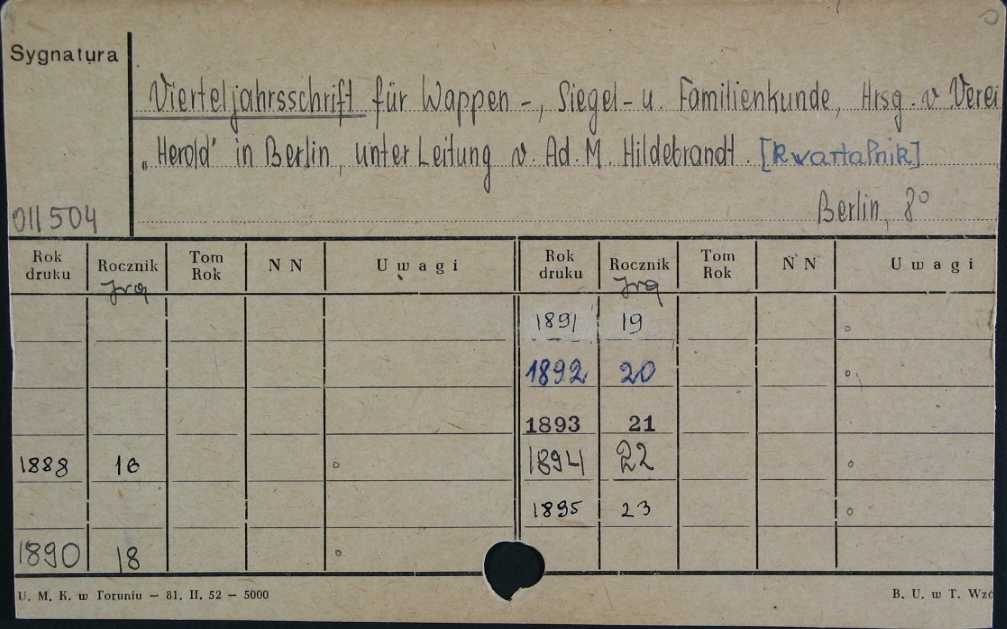 Sygnatura
Vierteljahrsschrift für Wappen-, Siegel- u. Familienkunde, Hrsg. v Verei
„Herold" in Berlin, unter Leitung v. Ad. M. Hildebrandt. [kwartalnik]
011504 Berlin, 8°
Rok druku Rocznik Tom Rok N N Uwagi Rok druku Rocznik Tom Rok N N Uwagi
Jrg Jrg
1891 19
1892 20
1893 21
1888 16 1894 22
1895 23
1890 18
U. M. K. w Toruniu — 81. II. 52 — 5000 B. U. w T. Wzó